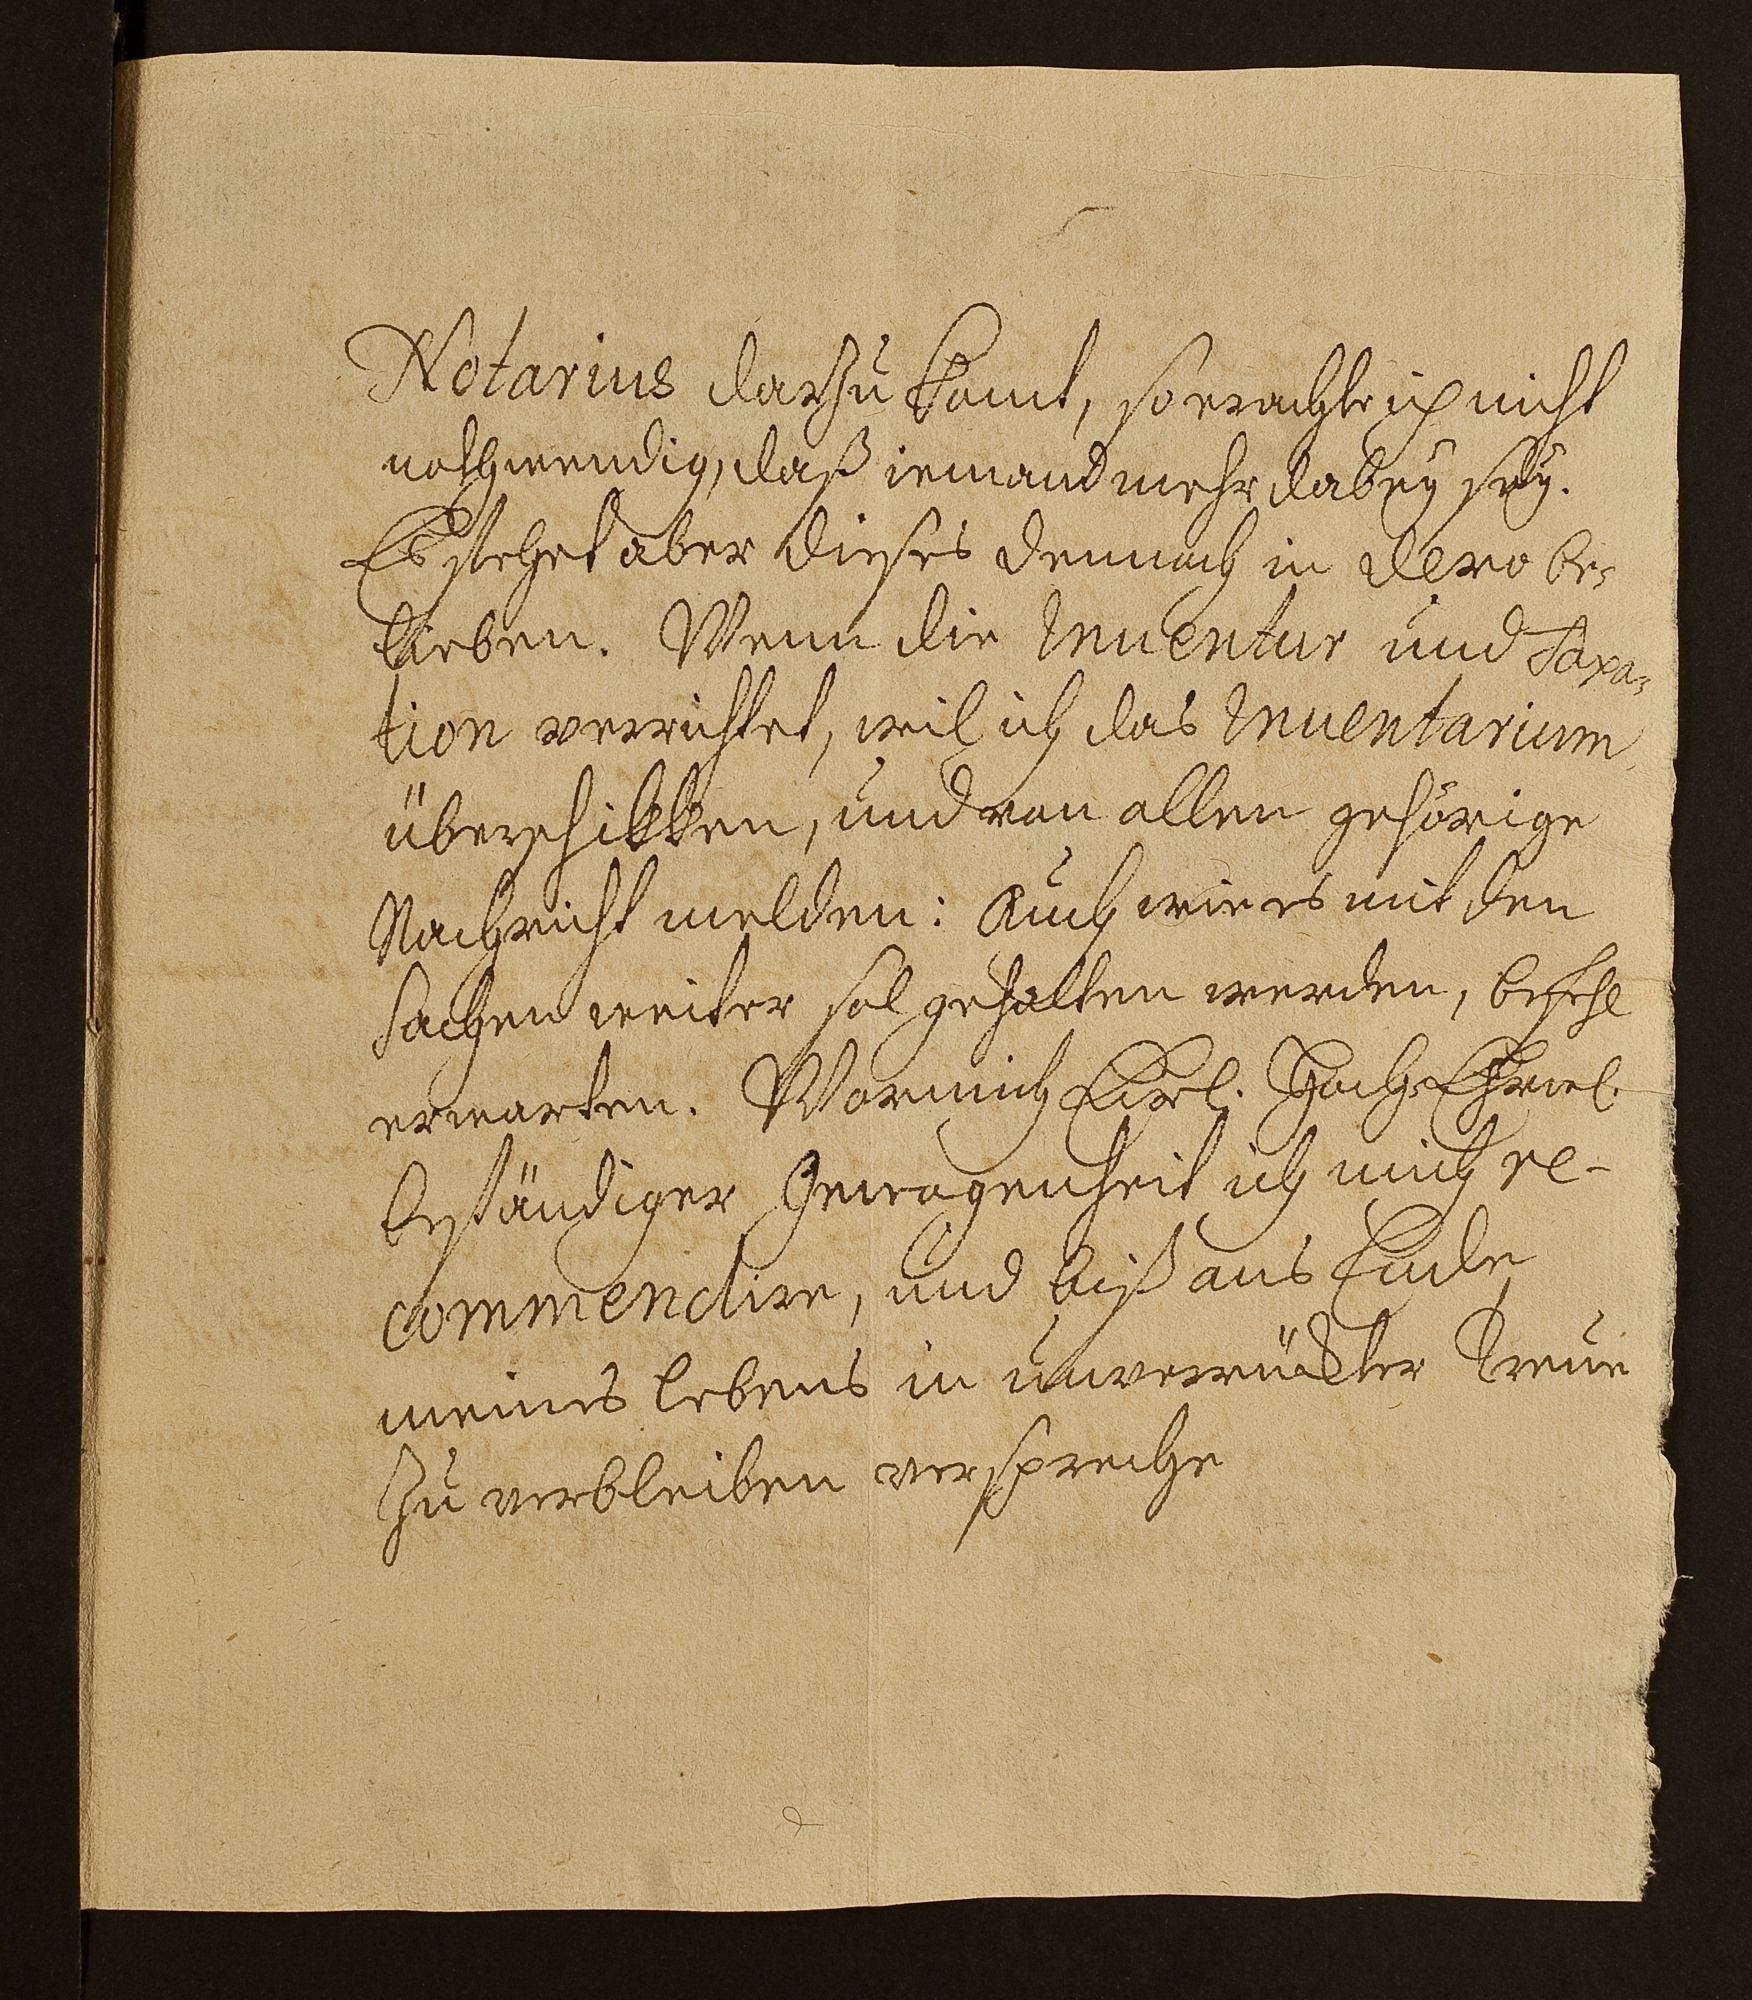 Notarius darzu komt, so erachte ich nicht
nothwendig, daß iemand mehr dabey sey.
Es stehet aber dieses dennoch in dero be-
lieben. Wenn die Inventur und Taxa-
tion verrichtet, wil ich das Inventarium
überschikken, und von allen gehörige
Nachricht melden: Auch wie es mit den
Sachen weiter sol gehalten werden, befehl
erwarten. Womit
beständiger Gewogenheit ich mich re-
commendire, und biß ans Ende
meines lebens in unverrückter Treue
zu verbleiben verspreche